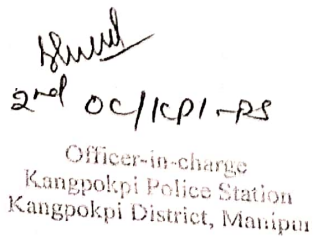 2nd OC/KPI-PS
Officer-in-charge
Kangpokpi Police Station
Kangpokpi District, Manipur